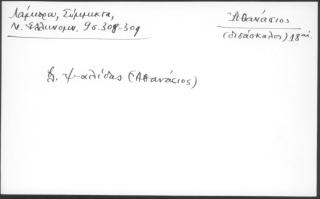 Λάμπρου, Σύμμικτα,
Ν. Ἑλληνομν. 9 σ. 308-309
Ἀθανάσιος
(διδάσκαλος) 18 αἰ.
β. Ψαλίδας (Ἀθανάσιος)